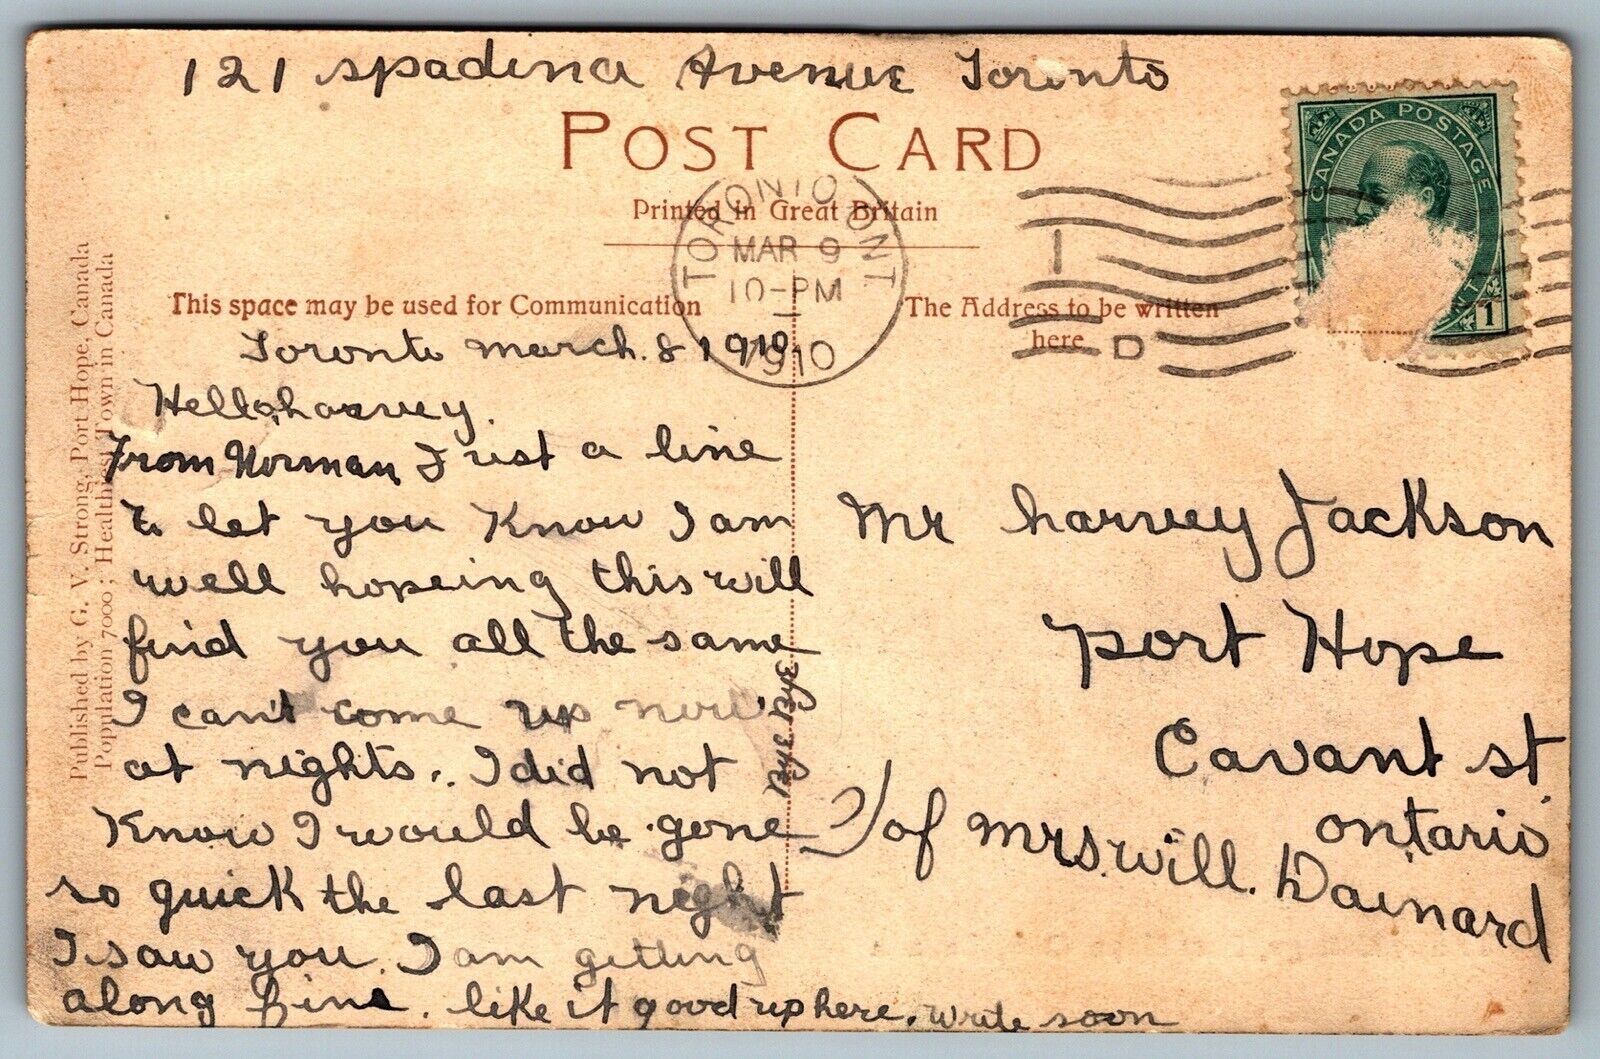 121 spadina Avenue Toronto
POST CARD
Printed in Great Britain
TORONTO ONT.
MAR 9
10-PM
1910
1
D
CANADA POSTAGE
1
This space may be used for Communication
The Address to be written
here
Published by G. V. Strong, Port Hope, Canada
Population 7000; Healthiest Town in Canada
Toronto march. 8 1910
Hello harvey.
From Norman, Just a line
to let you Know I am
well hopeing this will
find you all the same
I can't come up now
at nights. I did not
Know I would be gone
so quick the last night
I saw you. I am getting
along fine. like it good up here. write soon
Mr harvey Jackson
Port Hope
Cavant st
ontario
c/of Mrs. will. Dainard